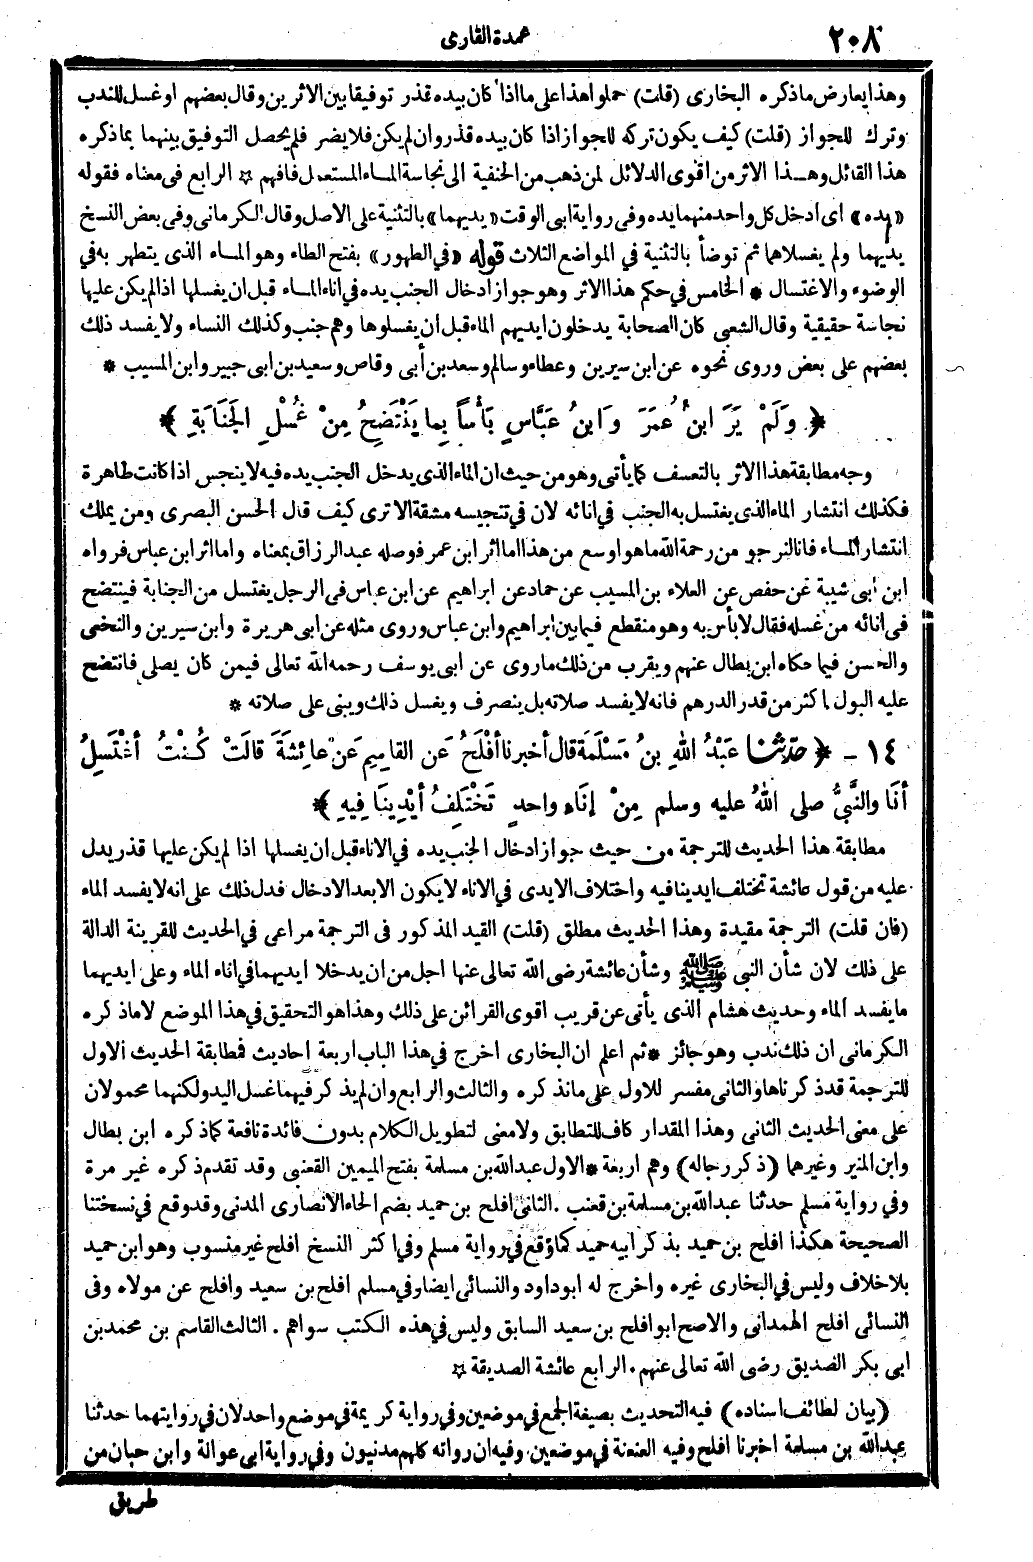 ٢٠٨
عمدة القارى
وهذا يعارض ما ذكره البخارى (قلت) حملوا هذا على ما اذا كان بيده قذر توفيقا بين الاثرين وقال بعضهم او غسل للندب
وترك للجواز (قلت) كيف يكون تركه للجواز اذا كان بيده قذر وان لم يكن فلا يضر فلم يحصل التوفيق بينهما بما ذكره
هذا القائل وهـذا الاثر من اقوى الدلائل لمن ذهب من الحنفية الى نجاسة المـاء المستعمل فافهم ☆ الرابع فى معناه فقوله
«يده» اى ادخل كل واحد منهما يده وفى رواية ابى الوقت «يديهما» بالتثنية على الاصل وقال الكرمانى وفى بعض النسخ
يديهما ولم يغسلاهما ثم توضأ بالتثنية في المواضع الثلاث قوله «في الطهور» بفتح الطاء وهو المـاء الذى يتطهر به في
الوضوء والاغتسال * الخامس في حكم هذا الاثر وهو جواز ادخال الجنب يده في اناء المـاء قبل ان يغسلها اذا لم يكن عليها
نجاسة حقيقية وقال الشعبى كان الصحابة يدخلون ايديهم الماء قبل ان يغسلوها وهم جنب وكذلك النساء ولا يفسد ذلك
بعضهم على بعض وروى نحوه عن ابن سيرين وعطاء وسالم وسعد بن أبى وقاص وسعيد بن ابى جبير وابن المسيب *
﴿ وَلَمْ يَرَ ابنُ عُمَرَ وَابنُ عَبَّاسٍ بَأْساً بِما يَنْتَضِحُ مِنْ غُسْلِ الجَنَابَةِ ﴾
وجه مطابقة هذا الاثر بالتعسف كما يأتى وهو من حيث ان الماء الذى يدخل الجنب يده فيه لا ينجس اذا كانت طاهرة
فكذلك انتشار الماء الذى يغتسل به الجنب في انائه لان في تنجيسه مشقة الا ترى كيف قال الحسن البصرى ومن يملك
انتشار المـاء فانا لنرجو من رحمة الله ما هو اوسع من هذا اما اثر ابن عمر فوصله عبد الرزاق بمعناه واما اثر ابن عباس فرواه
ابن أبى شيبة عن حفص عن العلاء بن المسيب عن حماد عن ابراهيم عن ابن عباس فى الرجل يغتسل من الجنابة فينتضح
فى انائه من غسله فقال لا بأس به وهو منقطع فيما بين ابراهيم وابن عباس وروى مثله عن ابى هريرة وابن سيرين والنخعى
والحسن فيما حكاه ابن بطال عنهم ويقرب من ذلك ما روى عن ابى يوسف رحمه الله تعالى فيمن كان يصلى فانتضح
عليه البول اكثر من قدر الدرهم فانه لا يفسد صلاته بل ينصرف ويغسل ذلك ويبنى على صلاته *
١٤ - ﴿ حدّثنا عَبْدُ اللهِ بنُ مَسْلَمَةَ قال أخبرنا أفْلَحُ عَن القاسِمِ عَنْ عائِشَةَ قالَتْ كُنْتُ أغْتَسِلُ
أنَا والنَّبيُّ صلى اللهُ عليه وسلم مِنْ إنَاءٍ واحدٍ تَخْتَلِفُ أيْدِينَا فِيهِ ﴾
مطابقة هذا الحديث للترجمة من حيث جواز ادخال الجنب يده في الاناء قبل ان يغسلها اذا لم يكن عليها قذر يدل
عليه من قول عائشة تختلف ايدينا فيه واختلاف الايدى في الاناء لا يكون الا بعد الادخال فدل ذلك على انه لا يفسد الماء
(فان قلت) الترجمة مقيدة وهذا الحديث مطلق (قلت) القيد المذكور فى الترجمة مراعى في الحديث للقرينة الدالة
على ذلك لان شأن النبى ﷺ وشأن عائشة رضى الله تعالى عنها اجل من ان يدخلا ايديهما في اناء الماء وعلى ايديهما
ما يفسد الماء وحديث هشام الذى يأتى عن قريب اقوى القرائن على ذلك وهذا هو التحقيق في هذا الموضع لا ما ذكره
الكرمانى ان ذلك ندب وهو جائز * ثم اعلم ان البخارى اخرج في هذا الباب اربعة احاديث فمطابقة الحديث الاول
للترجمة قد ذكرناها والثانى مفسر للاول على ما نذكره والثالث والرابع وان لم يذكر فيهما غسل اليد ولكنهما محمولان
على معنى الحديث الثانى وهذا المقدار كاف للتطابق ولا معنى لتطويل الكلام بدون فائدة نافعة كما ذكره ابن بطال
وابن المنير وغيرهما (ذكر رجاله) وهم اربعة * الاول عبد الله بن مسلمة بفتح الميمين القعنبى وقد تقدم ذكره غير مرة
وفي رواية مسلم حدثنا عبد الله بن مسلمة بن قعنب . الثانى افلح بن حميد بضم الحاء الانصارى المدنى وقد وقع في نسختنا
الصحيحة هكذا افلح بن حميد بذكر ابيه حميد كما وقع في رواية مسلم وفي اكثر النسخ افلح غير منسوب وهو ابن حميد
بلا خلاف وليس في البخارى غيره واخرج له ابو داود والنسائى ايضا وفي مسلم افلح بن سعيد وافلح عن مولاه وفى
النسائى افلح الهمدانى والاصح ابو افلح بن سعيد السابق وليس في هذه الكتب سواهم . الثالث القاسم بن محمد بن
ابى بكر الصديق رضى الله تعالى عنهم . الرابع عائشة الصديقة ☆
(بيان لطائف اسناده) فيه التحديث بصيغة الجمع في موضعين وفي رواية كريمة في موضع واحد لان في روايتهما حدثنا
عبد الله بن مسلمة اخبرنا افلح وفيه العنعنة في موضعين وفيه ان رواته كلهم مدنيون وفي رواية ابى عوالة وابن حبان من
طريق